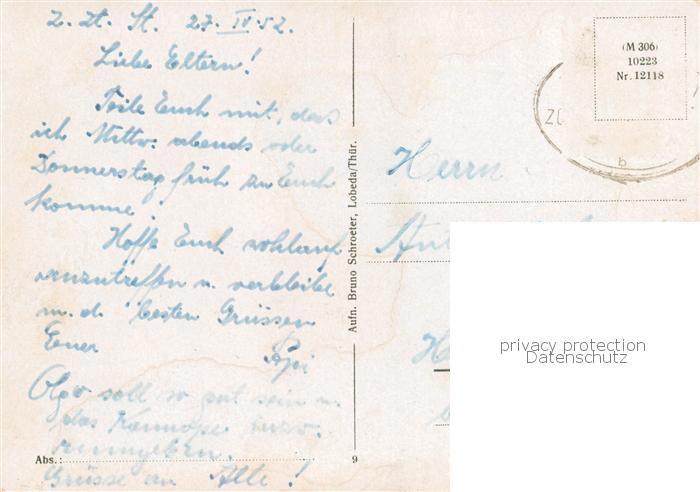 z. Zt. St. 27. IV. 52.
Liebe Eltern!
Teile Euch mit, dass
ich Mittw. abends oder
Donnerstag früh zu Euch
komme.
Hoffe Euch wohlauf
anzutreffen u. verbleibe
m. d. besten Grüssen
Euer
Olga soll so gut sein u.
das
Grüsse an Alle!
Abs.:
9
Aufn. Bruno Schroeter, Lobeda/Thür.
(M 306)
10223
Nr. 12118
b
Herrn
privacy protection
Datenschutz